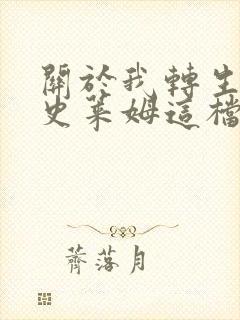 關於我轉生
史萊姆這檔
薺落月